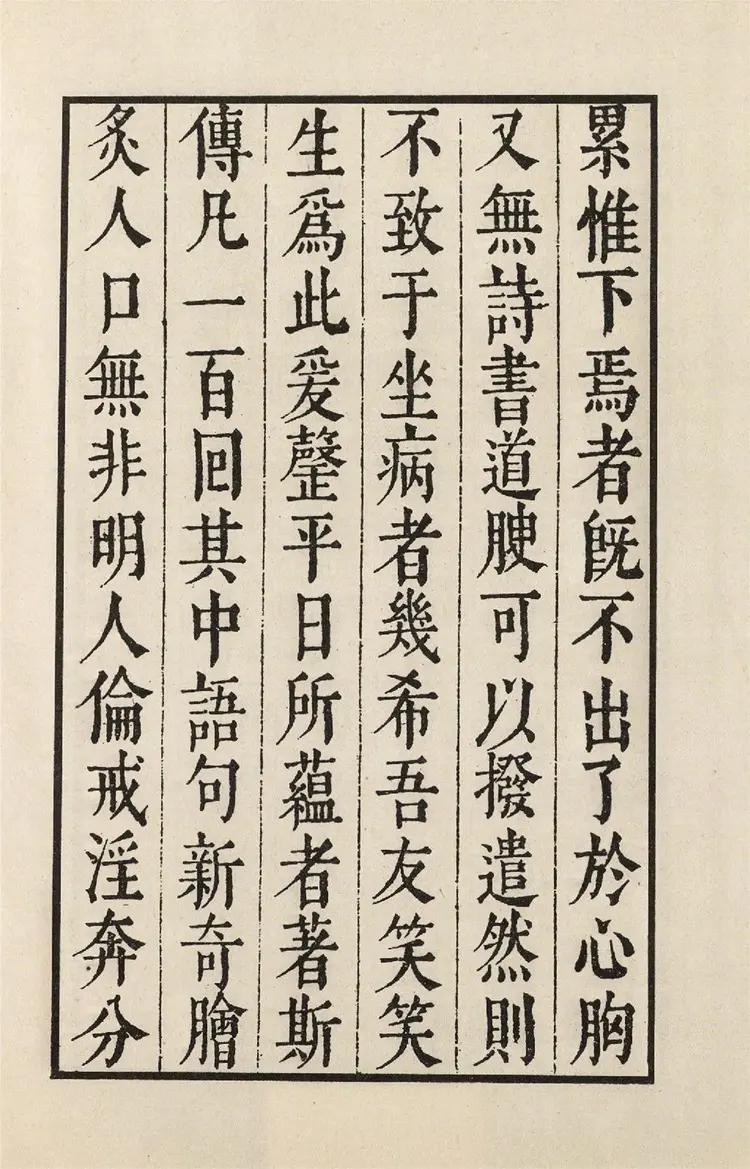 累惟下焉者既不出了於心胸
又無詩書道腴可以撥遣然則
不致于坐病者幾希吾友笑笑
生爲此爰罄平日所蘊者著斯
傳凡一百回其中語句新奇膾
炙人口無非明人倫戒淫奔分